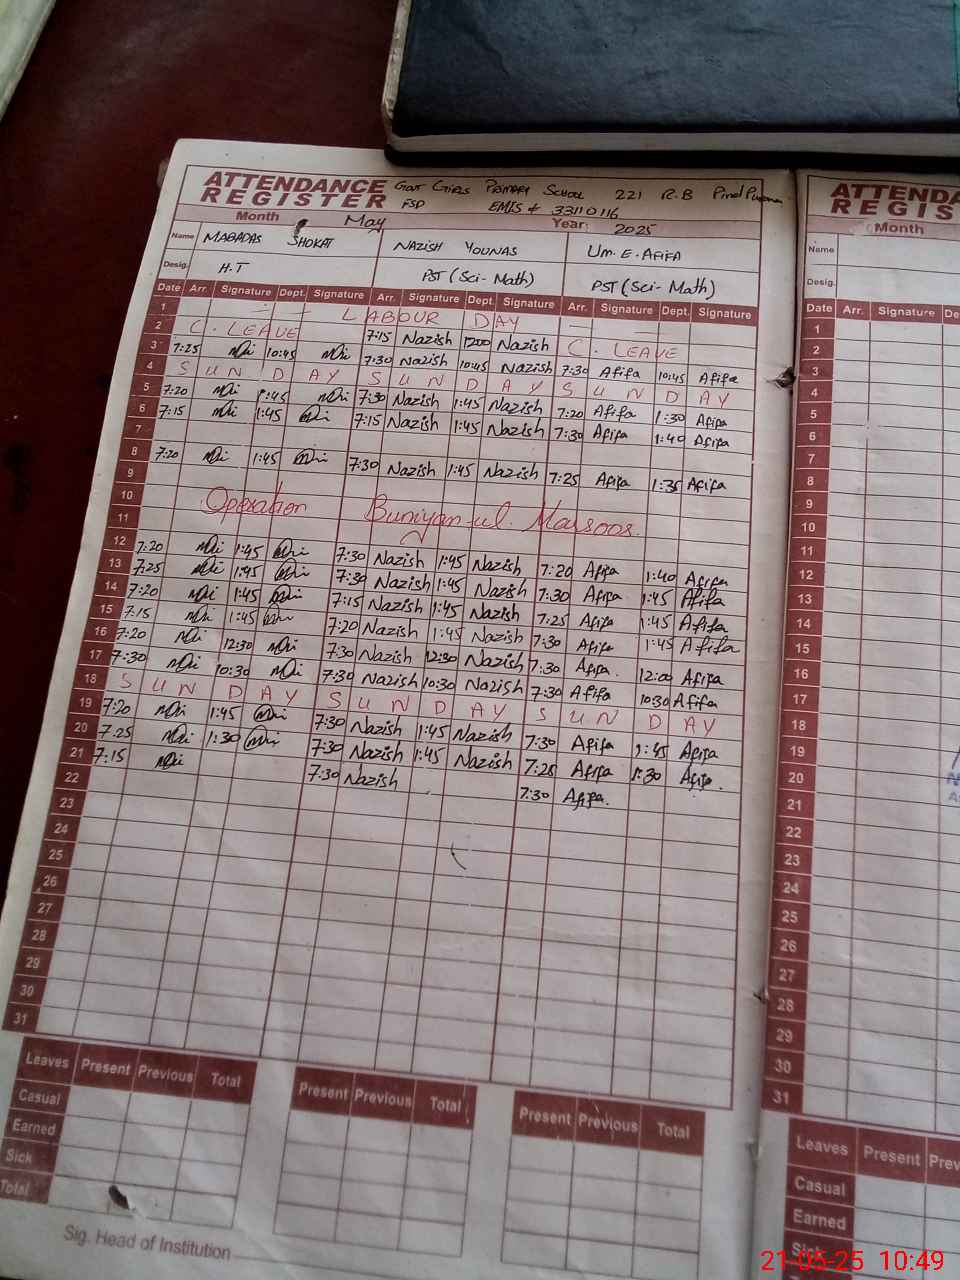 ATTENDANCE REGISTER Govt Girls Primary School 221 R.B
FSD EMIS # 33110116
Month May Year: 2025
Name MABADAS SHOKAT NAZISH YOUNAS Um. E. AFIFA
Desig. H.T PST (Sci-Math) PST (Sci-Math)
Date Arr. Signature Dept. Signature Arr. Signature Dept. Signature Arr. Signature Dept. Signature
1 LABOUR DAY
2 C. LEAVE 7:15 Nazish 1200 Nazish C. LEAVE
3 7:25 10:45 7:30 Nazish 10:45 Nazish 7:30 Afifa 10:45 Afifa
4 SUNDAY SUNDAY SUNDAY
5 7:20 1:45 7:30 Nazish 1:45 Nazish 7:20 Afifa 1:30 Afifa
6 7:15 1:45 7:15 Nazish 1:45 Nazish 7:30 Afifa 1:40 Afifa
7
8 7:20 1:45 7:30 Nazish 1:45 Nazish 7:25 Afifa 1:35 Afifa
9
10 Operation Buniyan ul. Marsoos.
11
12 7:20 1:45 7:30 Nazish 1:45 Nazish 7:20 Afifa 1:40 Afifa
13 7:25 1:45 7:30 Nazish 1:45 Nazish 7:30 Afifa 1:45 Afifa
14 7:20 1:45 7:15 Nazish 1:45 Nazish 7:25 Afifa 1:45 Afifa
15 7:15 1:45 7:20 Nazish 1:45 Nazish 7:30 Afifa 1:45 Afifa
16 7:20 12:30 7:30 Nazish 12:30 Nazish 7:30 Afifa 12:00 Afifa
17 7:30 10:30 7:30 Nazish 10:30 Nazish 7:30 Afifa 10:30 Afifa
18 SUNDAY SUNDAY SUNDAY
19 7:20 1:45 7:30 Nazish 1:45 Nazish 7:30 Afifa 1:45 Afifa
20 7:25 1:30 7:30 Nazish 1:45 Nazish 7:25 Afifa 1:30 Afifa.
21 7:15 7:30 Nazish 7:30 Afifa.
22
23
24
25
26
27
28
29
30
31
Leaves Present Previous Total Present Previous Total Present Previous Total
Casual
Earned
Sick
Total
Sig. Head of Institution
ATTENDA
REGIS
Month
Name
Desig.
Date Arr. Signature Dep
1
2
3
4
5
6
7
8
9
10
11
12
13
14
15
16
17
18
19
20
21
22
23
24
25
26
27
28
29
30
31
Leaves Present Prev
Casual
Earned
Sick
21-05-25 10:49